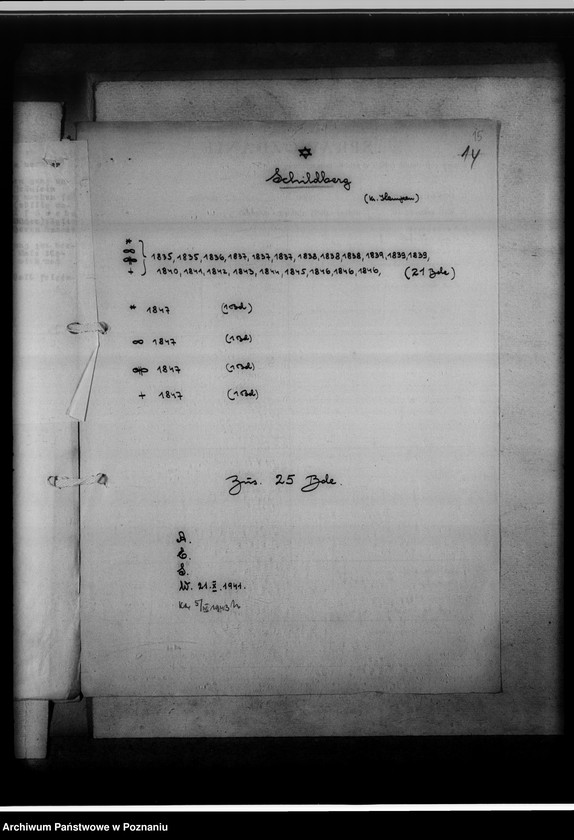 15
14
✡
Schildberg
(Kr. Kempen)
*
∞
+
1835, 1835, 1836, 1837, 1837, 1837, 1838, 1838, 1838, 1839, 1839, 1839,
1840, 1841, 1842, 1843, 1844, 1845, 1846, 1846, 1846, (21 Bde)
* 1847 (1 Bd)
∞ 1847 (1 Bd)
1847 (1 Bd)
+ 1847 (1 Bd)
Zus. 25 Bde.
A.
E.
S.
W. 21.X.1941.
Archiwum Państwowe w Poznaniu